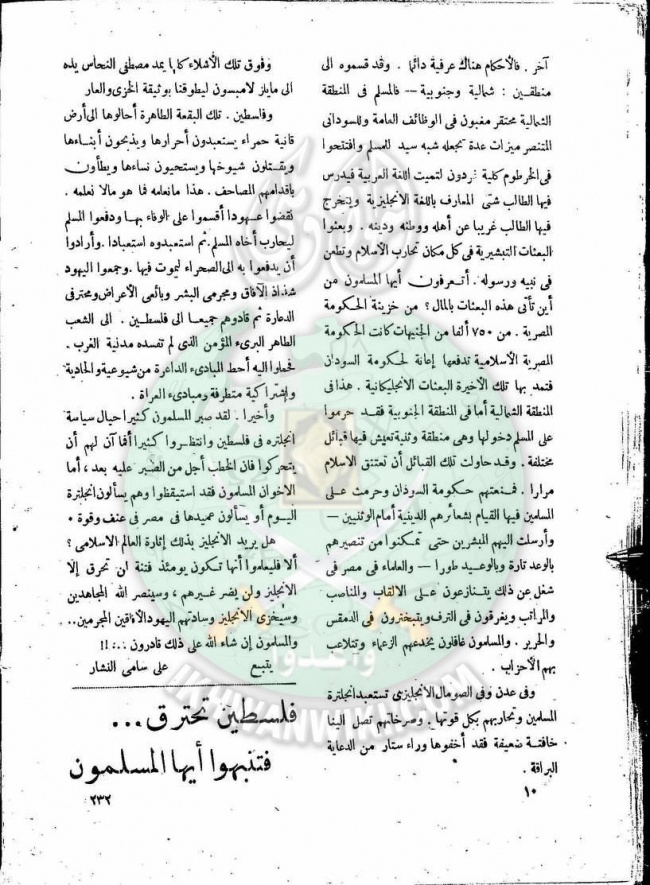 آخر . فالأحكام هناك عرفية دائما . وقد قسموه الى
منطقتين : شمالية وجنوبية — فالمسلم فى المنطقة
الشمالية محتقر مغبون فى الوظائف العامة وللسودانى
المتنصر ميزات عدة تجعله شبه سيد للمسلم وافتتحوا
فى الخرطوم كلية غردون لتميت اللغة العربية فيدرس
فيها الطالب شتى المعارف باللغة الانجليزية ويتخرج
فيها الطالب غريبا عن أهله ووطنه ودينه . وبعثوا
البعثات التبشيرية فى كل مكان تحارب الاسلام وتطعن
فى نبيه ورسوله . أتعرفون أيها المسلمون من
أين تأتى هذه البعثات بالمال ؟ من خزينة الحكومة
المصرية . من ٧٥٠ ألفا من الجنيهات كانت الحكومة
المصرية الأسلامية تدفعها إعانة لحكومة السودان
فتمد بها تلك الأخيرة البعثات الانجليكانية . هذا فى
المنطقة الشمالية أما فى المنطقة الجنوبية فقد حرموا
على المسلم دخولها وهى منطقة وثنية تعيش فيها قبائل
مختلفة . وقد حاولت تلك القبائل أن تعتنق الاسلام
مرارا . فمنعتهم حكومة السودان وحرمت على
المسلمين فيها القيام بشعائرهم الدينية أمام الوثنيين —
وأرسلت اليهم المبشرين حتى تمكنوا من تنصيرهم
بالوعد تارة وبالوعيد طورا — والعلماء فى مصر فى
شغل عن ذلك يتنازعون على الالقاب والمناصب
والمراتب ويغرقون فى الترف ويتبخترون فى الدمقس
والحرير . والمسلمون غافلون يخدعهم الزعماء وتتلاعب
بهم الأحزاب .
وفى عدن وفى الصومال الانجليزى تستعبد انجلترة
المسلمين وتحاربهم بكل قوتها . وصرخاتهم تصل الينا
خافتة ضعيفة فقد أخفوها وراء ستار من الدعاية
البراقة .
١٠
وفوق تلك الأشلاء كلها يمد مصطفى النحاس يده
الى مايلز لامبسون ليطوقنا بوثيقة الخزى والعار
وفلسطين . تلك البقعة الطاهرة أحالوها الى أرض
قانية حمراء يستعبدون أحرارها ويذبحون أبناءها
ويقتلون شيوخها ويستحيون نساءها ويطأون
باقدامهم المصاحف . هذا مانعلمه فما هو مالا نعلمه .
نقضوا عهودا أقسموا على الوفاء بها ودفعوا المسلم
ليحارب أخاه المسلم . ثم استعبدوه استعبادا . وأرادوا
أن يدفعوا به الى الصحراء ليموت فيها . وجمعوا اليهود
شذاذ الآفاق ومجرمى البشر وبائعى الأعراض ومحترفى
الدعارة ثم قادوهم جميعا الى فلسطين . الى الشعب
الطاهر البرىء المؤمن الذى لم تفسده مدنية الغرب .
فحملوا اليه أحط المبادىء الداعرة من شيوعية والحادية
وإشتراكية متطرفة ومبادىء العراة .
وأخيرا . لقد صبر المسلمون كثيرا حيال سياسة
انجلتره فى فلسطين وانتظروا كثيرا أفما آن لهم أن
يتحركوا فان الخطب أجل من الصبر عليه بعد ، أما
الاخوان المسلمون فقد استيقظوا وهم يسألون انجلترة
اليوم أو يسألون عميدها فى مصر فى عنف وقوة .
هل يريد الانجليز بذلك إثارة العالم الاسلامى ؟
ألا فليعلموا أنها تكون يومئذ فتنة ان تحرق إلا
الانجليز ولن يضر غيرهم ، وسينصر الله المجاهدين
وسيخزى الانجليز وسادتهم اليهود الآفاقين المجرمين ..
والمسلمون إن شاء الله على ذلك قادرون .:. !!
يتبع على سامى النشار
فلسطين تحترق ...
فتنبهوا أيها المسلمون
٢٣٢
وأعدوا
IKHWANWIKI.COM